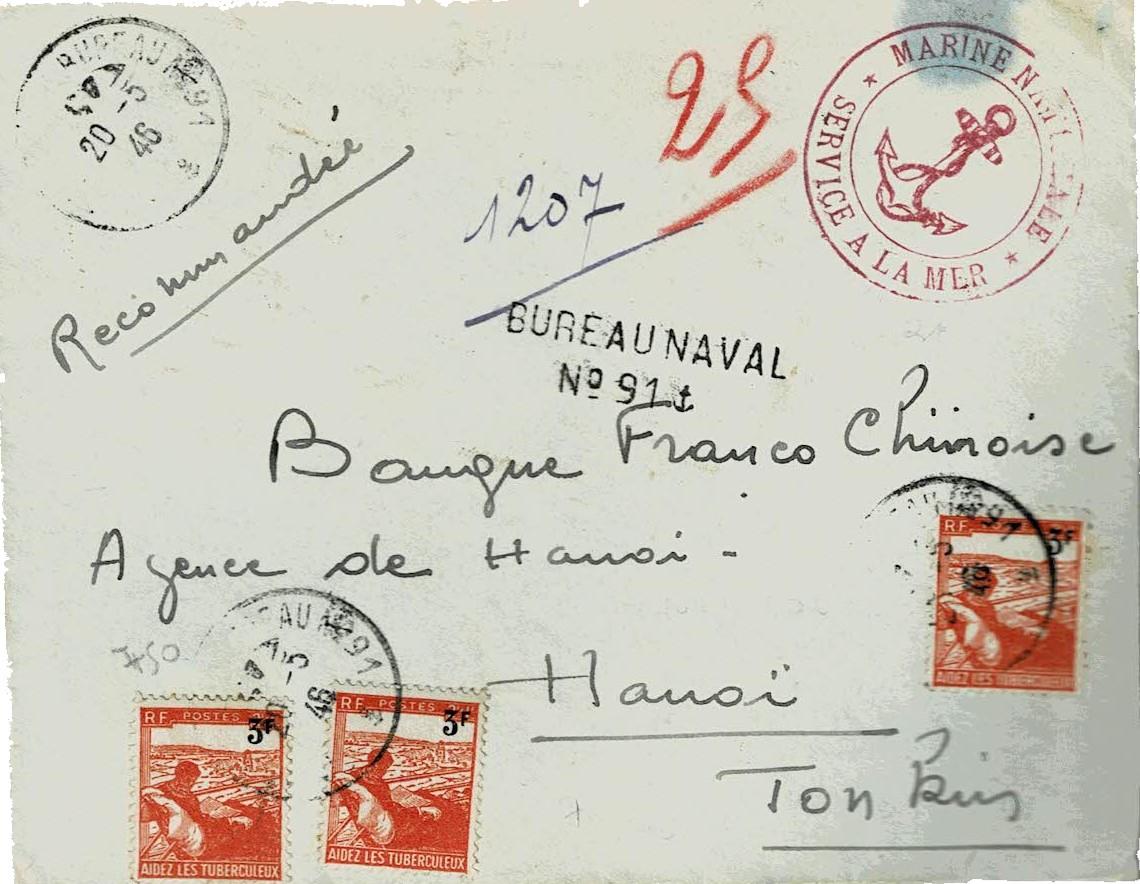 BUREAU Nº 91
20 -5
46
Recommandée
1207
25
MARINE NATIONALE
SERVICE A LA MER
BUREAU NAVAL
Nº 91
Banque Franco Chinoise
Agence de Hanoi -
Hanoï
Tonkin
750
BUREAU Nº 91
-5
46
RF POSTES 3F
AIDEZ LES TUBERCULEUX
RF POSTES 3F
AIDEZ LES TUBERCULEUX
91
46
RF 3F
AIDEZ LES TUBERCULEUX